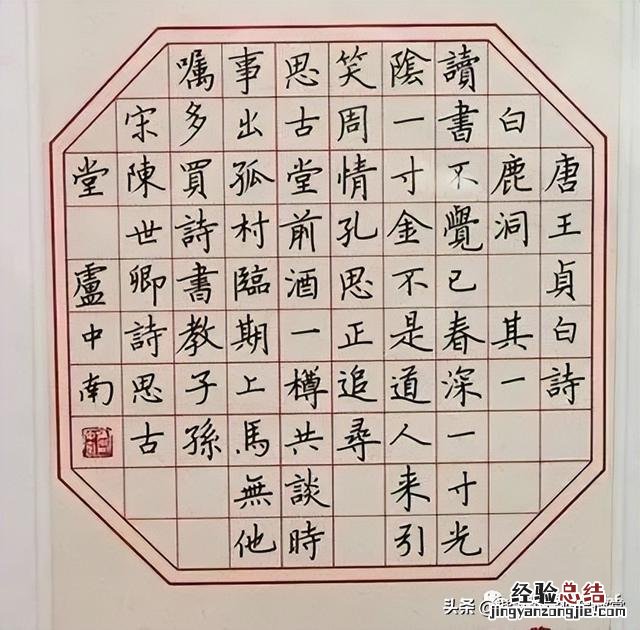 唐王貞白詩
白鹿洞 其一
讀書不覺已春深一寸光
陰一寸金不是道人来引
笑周情孔思正追尋
思古堂前酒一樽共談時
事出孤村臨期上馬無他
囑多買詩書教子孫
宋陳世卿詩思古
堂 盧中南
头条
经验总结
jingyanzongjie.com